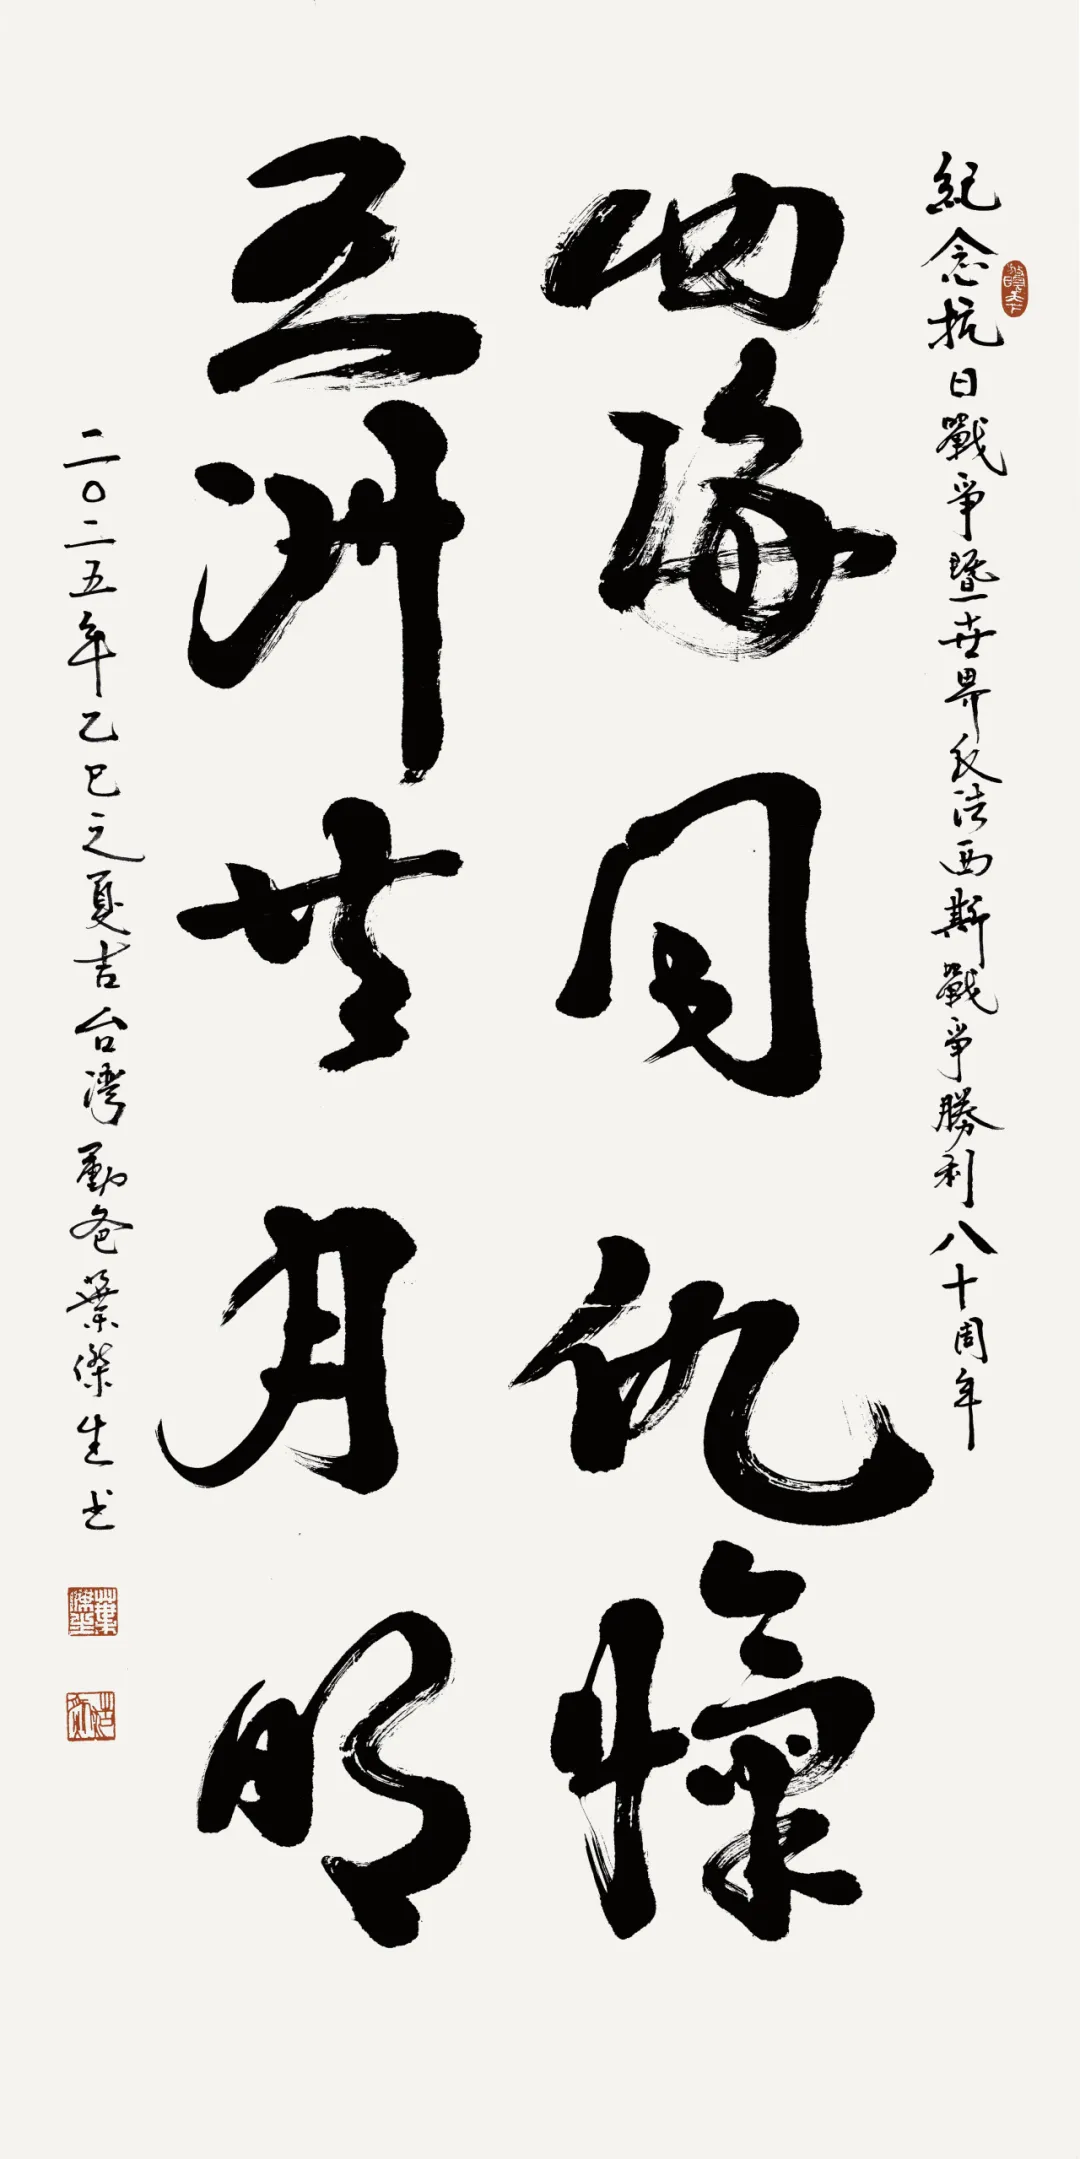 紀念抗日戰爭暨世界反法西斯戰爭勝利八十周年
四海同仇愾
五洲共月明
二〇二五年乙巳之夏吉台灣葉傑生书
葉傑生